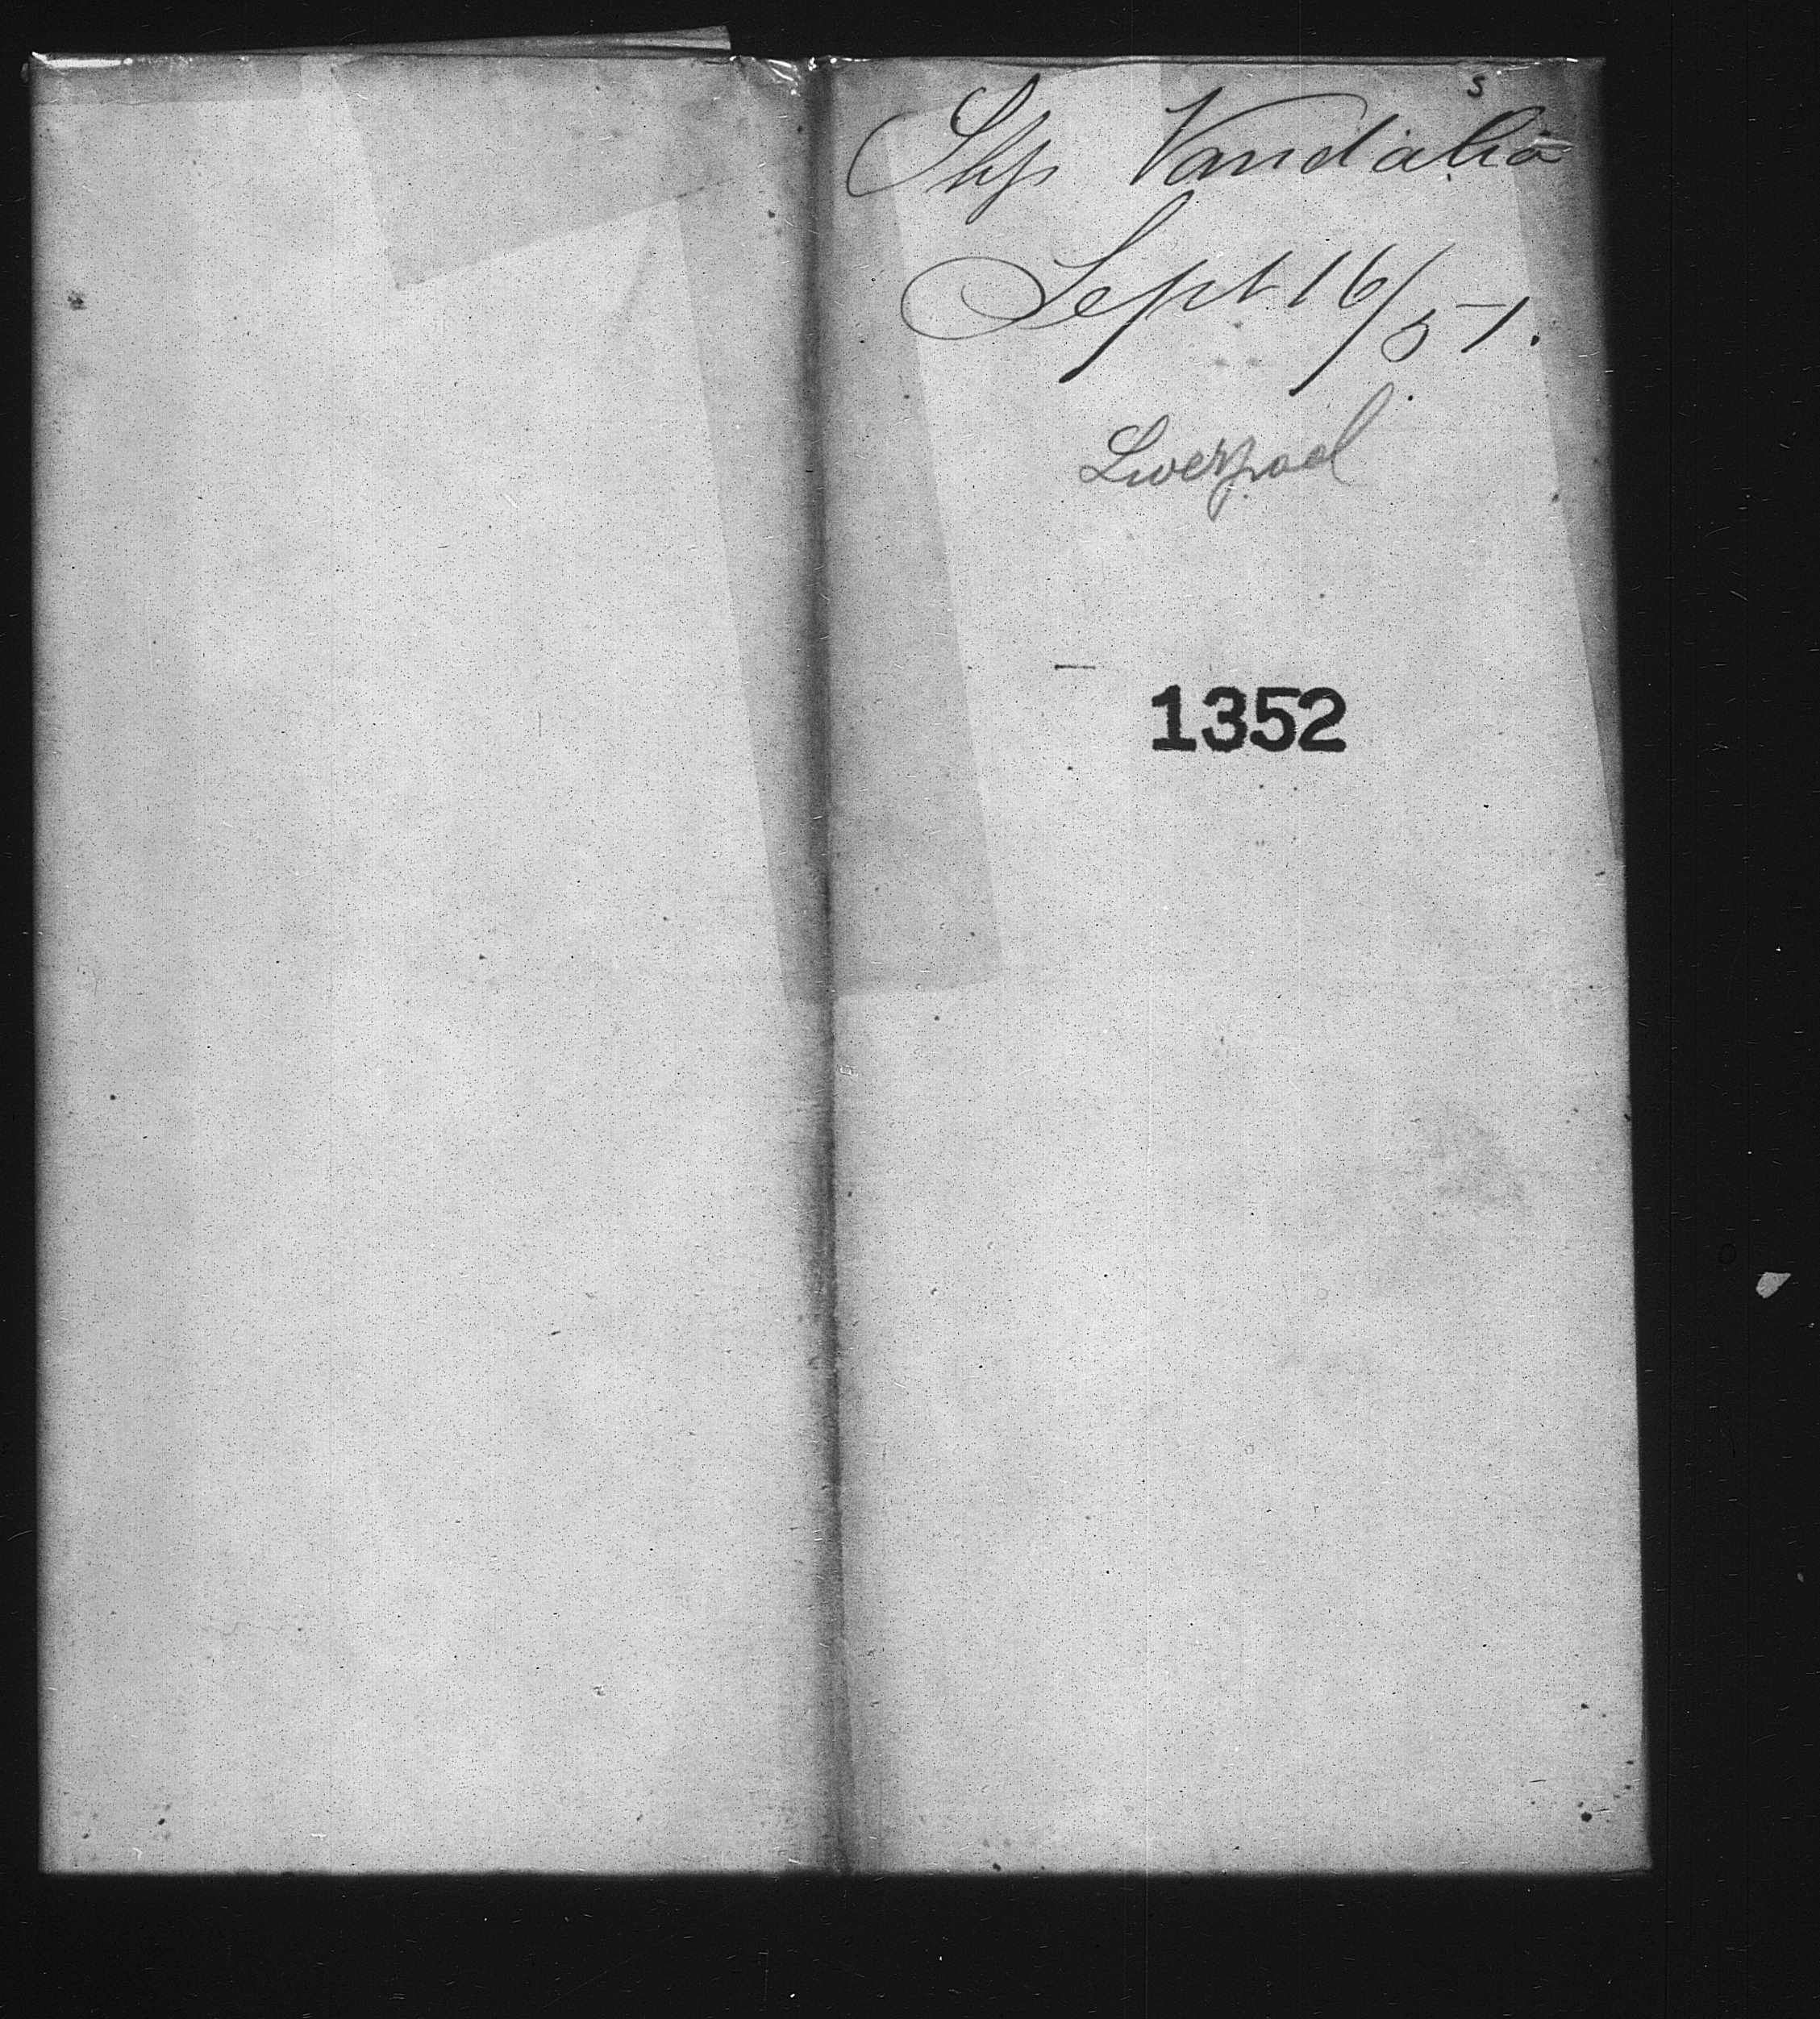 s
Ship Vandalia
Sept 16/51.
Liverpool
1352